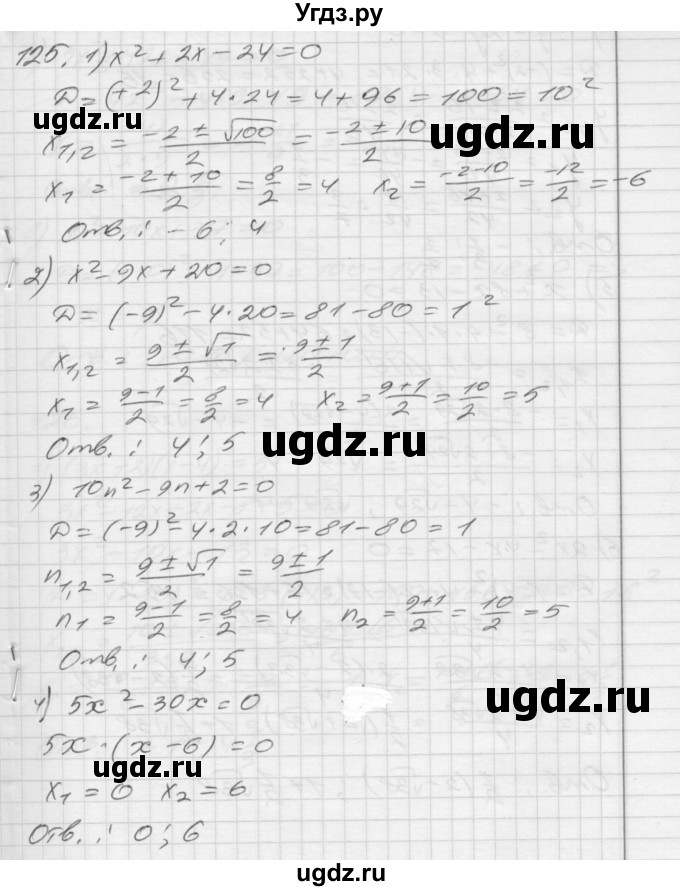 Угдз.ру
125. 1) x² + 2x - 24 = 0
D = (+2)² + 4·24 = 4 + 96 = 100 = 10²
ugdz.ru
ugdz.ru
x1,2 = (-2 ± √100)/2 = (-2 ± 10)/2
x1 = (-2 + 10)/2 = 8/2 = 4 x2 = (-2-10)/2 = -12/2 = -6
Отв.: -6; 4
2) x² - 9x + 20 = 0
D = (-9)² - 4·20 = 81 - 80 = 1²
x1,2 = (9 ± √1)/2 = (9 ± 1)/2
x1 = (9-1)/2 = 8/2 = 4 x2 = (9+1)/2 = 10/2 = 5
Отв.: 4; 5
ugdz.ru
3) 10n² - 9n + 2 = 0
D = (-9)² - 4·2·10 = 81 - 80 = 1
n1,2 = (9 ± √1)/2 = (9 ± 1)/2
n1 = (9-1)/2 = 8/2 = 4 n2 = (9+1)/2 = 10/2 = 5
Отв.: 4; 5
4) 5x² - 30x = 0
ugdz.ru
5x·(x - 6) = 0
ugdz.ru
x1 = 0 x2 = 6
Отв.: 0; 6
ugdz.ru